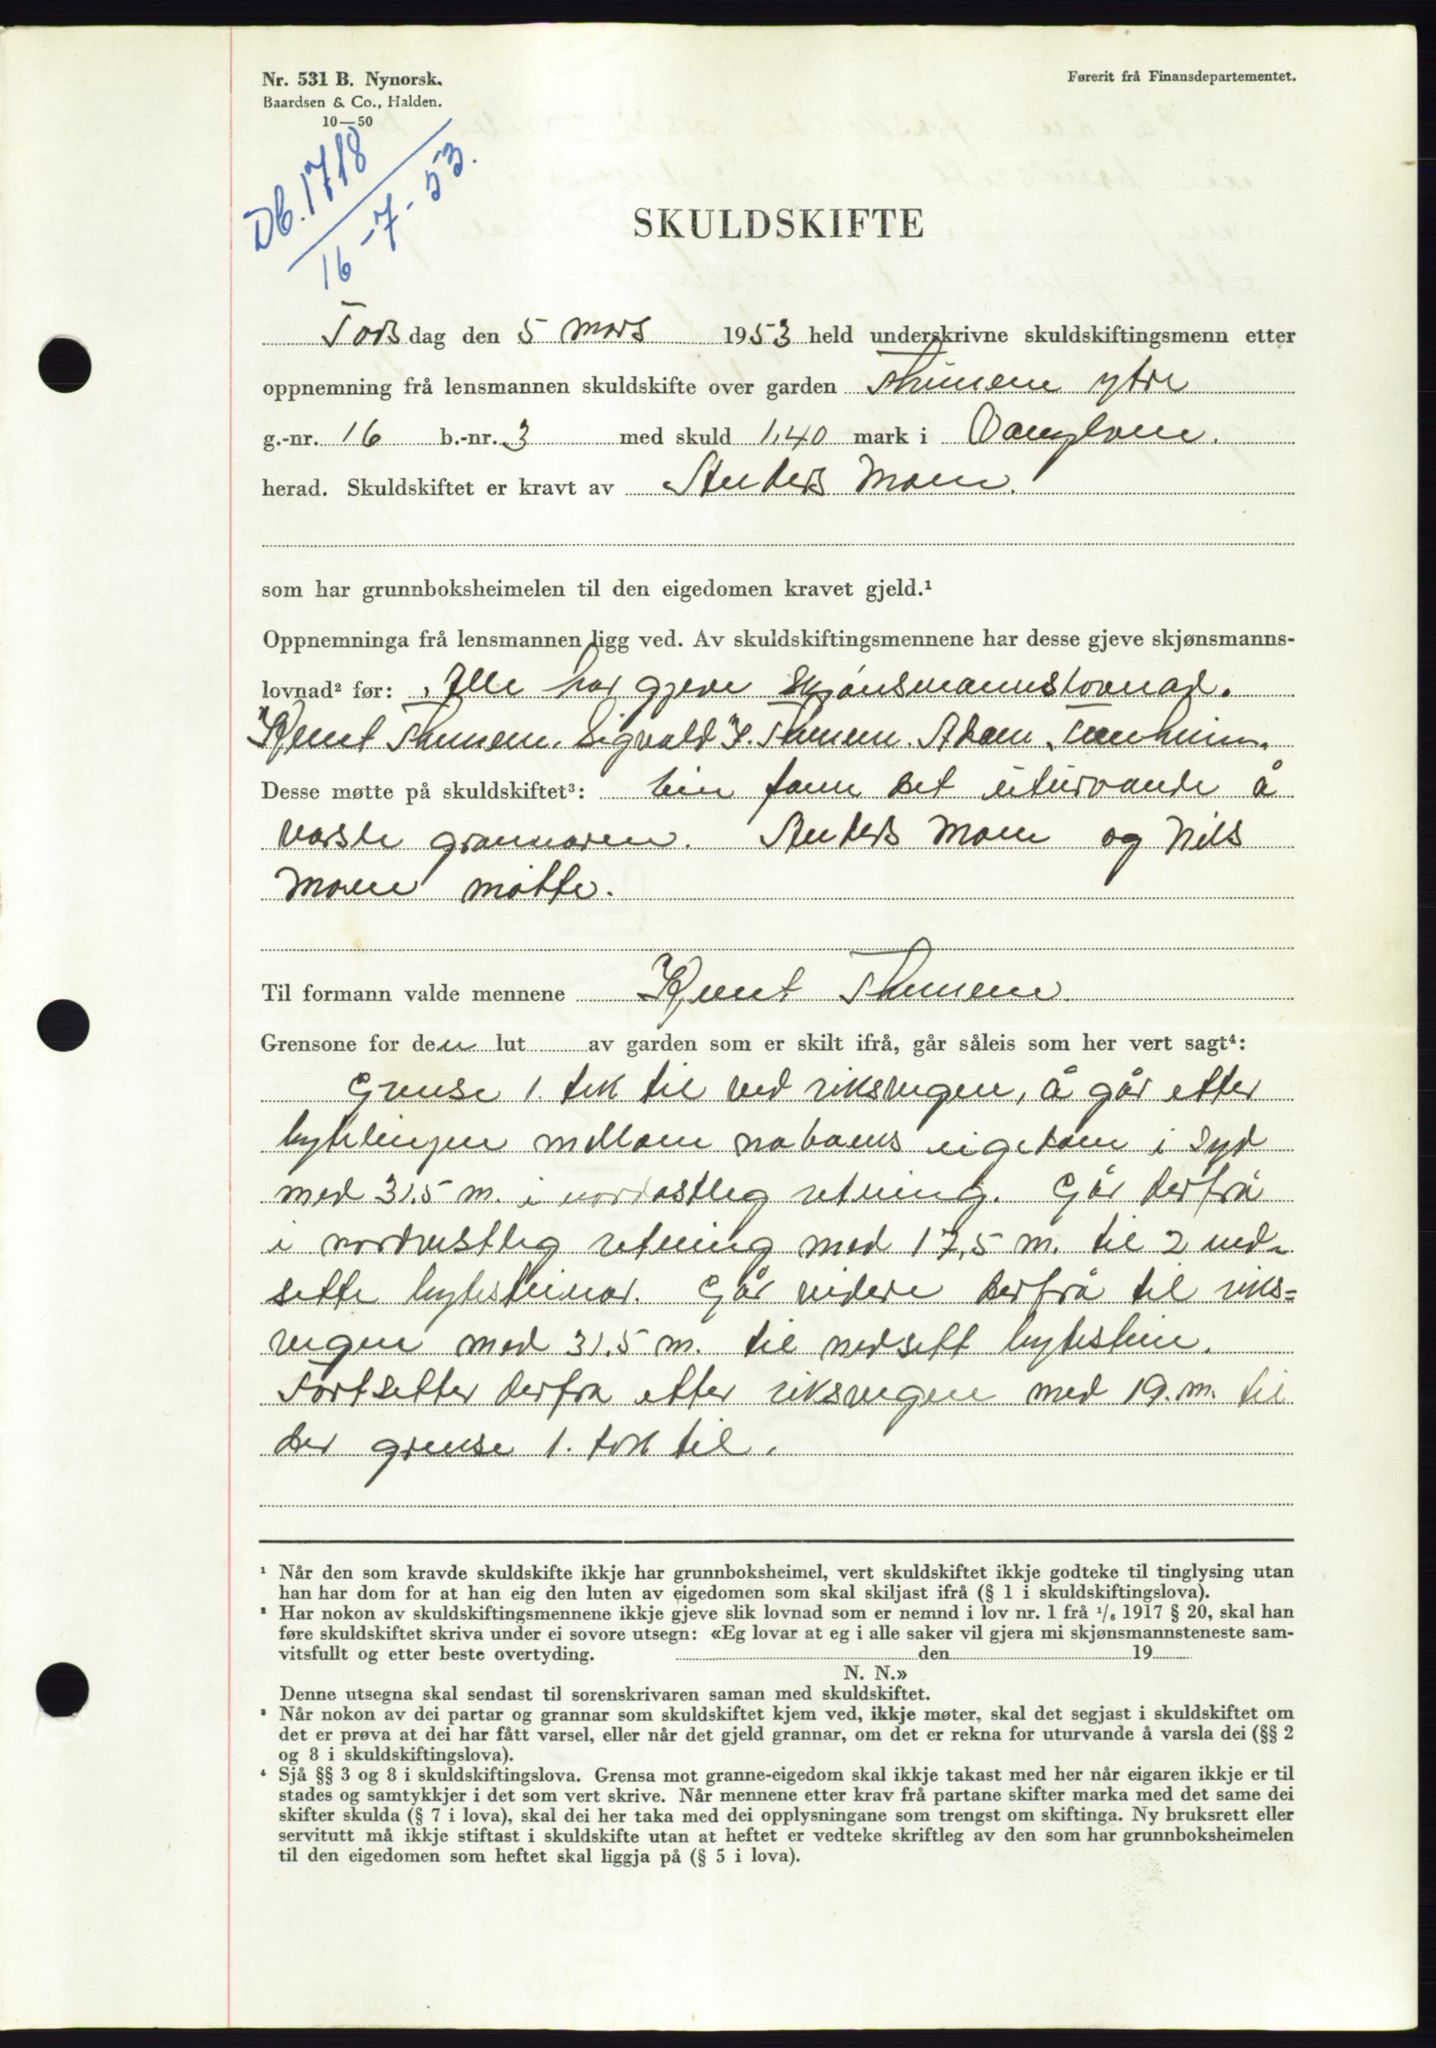 Nr. 531 B. Nynorsk.
Baardsen & Co., Halden.
10—50
Førerit frå Finansdepartementet.
Db. 1718
16-7-53.
SKULDSKIFTE
Torsdag den 5 mars 1953 held underskrivne skuldskiftingsmenn etter
oppnemning frå lensmannen skuldskifte over garden Thunem ytre
g.-nr. 16 b.-nr. 3 med skuld 1,40 mark i Vanylven.
herad. Skuldskiftet er kravt av Anders Moen.
som har grunnboksheimelen til den eigedomen kravet gjeld.¹
Oppnemninga frå lensmannen ligg ved. Av skuldskiftingsmennene har desse gjeve skjønsmanns-
lovnad² før: Alle har gjeve skjønsmannslovnad.
Knut Thunem. Sigvald K. Thunem. Adam
Desse møtte på skuldskiftet³: Ein fann det uturvande å
varsle grannaren. Anders Moen og Nils
Moen møtte.
Til formann valde mennene Knut Thunem.
Grensone for den lut av garden som er skilt ifrå, går såleis som her vert sagt⁴:
Grense 1. tek til ved riksvegen, å går etter
bytelinjen mellom naboens eigedom i syd
med 31.5 m. i nordostleg retning. Går derfrå
i nordvestleg retning med 17,5 m. til 2 ned-
sette bytesteinar. Går videre derfrå til riks=
vegen med 31.5 m. til nedsett bytestein.
Fortsetter derfra etter riksvegen med 19. m. til
der grense 1. tok til.
¹ Når den som kravde skuldskifte ikkje har grunnboksheimel, vert skuldskiftet ikkje godteke til tinglysing utan
han har dom for at han eig den luten av eigedomen som skal skiljast ifrå (§ 1 i skuldskiftingslova).
² Har nokon av skuldskiftingsmennene ikkje gjeve slik lovnad som er nemnd i lov nr. 1 frå ¹/₆ 1917 § 20, skal han
føre skuldskiftet skriva under ei sovore utsegn: «Eg lovar at eg i alle saker vil gjera mi skjønsmannsteneste sam-
vitsfullt og etter beste overtyding. den 19
N. N.»
Denne utsegna skal sendast til sorenskrivaren saman med skuldskiftet.
³ Når nokon av dei partar og grannar som skuldskiftet kjem ved, ikkje møter, skal det segjast i skuldskiftet om
det er prøva at dei har fått varsel, eller når det gjeld grannar, om det er rekna for uturvande å varsla dei (§§ 2
og 8 i skuldskiftingslova).
⁴ Sjå §§ 3 og 8 i skuldskiftingslova. Grensa mot granne-eigedom skal ikkje takast med her når eigaren ikkje er til
stades og samtykkjer i det som vert skrive. Når mennene etter krav frå partane skifter marka med det same dei
skifter skulda (§ 7 i lova), skal dei her taka med dei opplysningane som trengst om skiftinga. Ny bruksrett eller
servitutt må ikkje stiftast i skuldskifte utan at heftet er vedteke skriftleg av den som har grunnboksheimelen
til den eigedomen som heftet skal liggja på (§ 5 i lova).